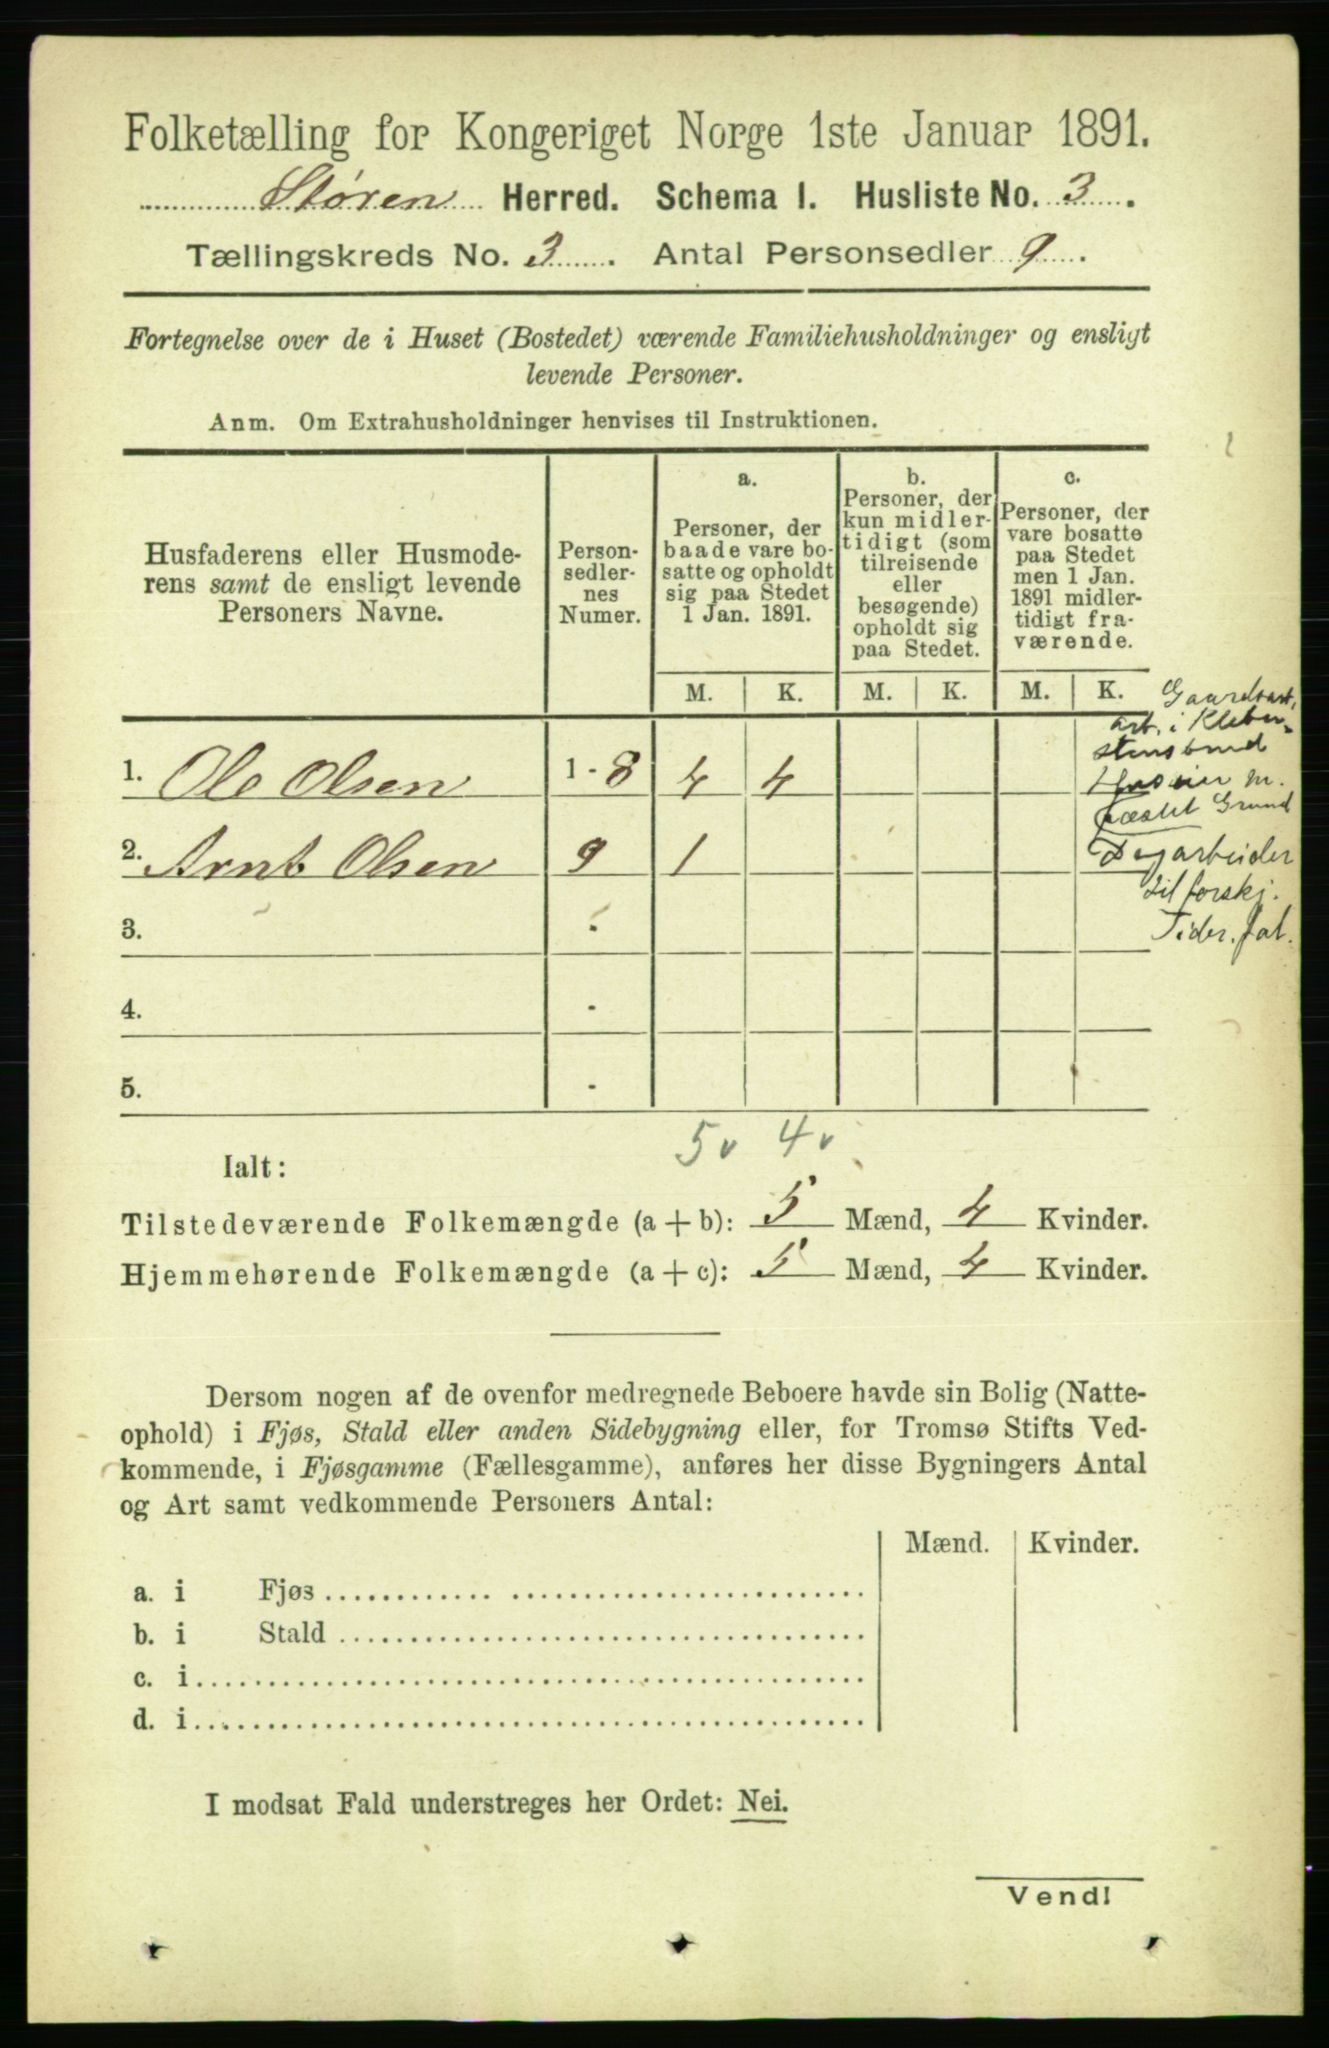 Folketælling for Kongeriget Norge 1ste Januar 1891.
Støren Herred. Schema I. Husliste No. 3.
Tællingskreds No. 3. Antal Personsedler 9.
Fortegnelse over de i Huset (Bostedet) værende Familiehusholdninger og ensligt
levende Personer.
Anm. Om Extrahusholdninger henvises til Instruktionen.
Husfaderens eller Husmode-
rens samt de ensligt levende
Personers Navne.
Person-
sedler-
nes
Numer.
a.
Personer, der
baade vare bo-
satte og opholdt
sig paa Stedet
1 Jan. 1891.
b.
Personer, der
kun midler-
tidigt (som
tilreisende
eller
besøgende)
opholdt sig
paa Stedet.
c.
Personer, der
vare bosatte
paa Stedet
men 1 Jan.
1891 midler-
tidigt fra-
værende.
M. K. M. K. M. K.
Gaardsarb.
arb. i Kleber-
stensbrud
Huseier m.
fæstet Grund
1. Ole Olsen 1 - 8 4 4
2. Arnt Olsen 9 1
Dagarbeider
til forskj.
Tider. fat.
3. -
4. -
5. -
5 v 4 v
Ialt:
Tilstedeværende Folkemængde (a + b): 5 Mænd, 4 Kvinder.
Hjemmehørende Folkemængde (a + c): 5 Mænd, 4 Kvinder.
Dersom nogen af de ovenfor medregnede Beboere havde sin Bolig (Natte-
ophold) i Fjøs, Stald eller anden Sidebygning eller, for Tromsø Stifts Ved-
kommende, i Fjøsgamme (Fællesgamme), anføres her disse Bygningers Antal
og Art samt vedkommende Personers Antal:
Mænd. Kvinder.
a. i Fjøs
b. i Stald
c. i
d. i
I modsat Fald understreges her Ordet: Nei.
Vend!